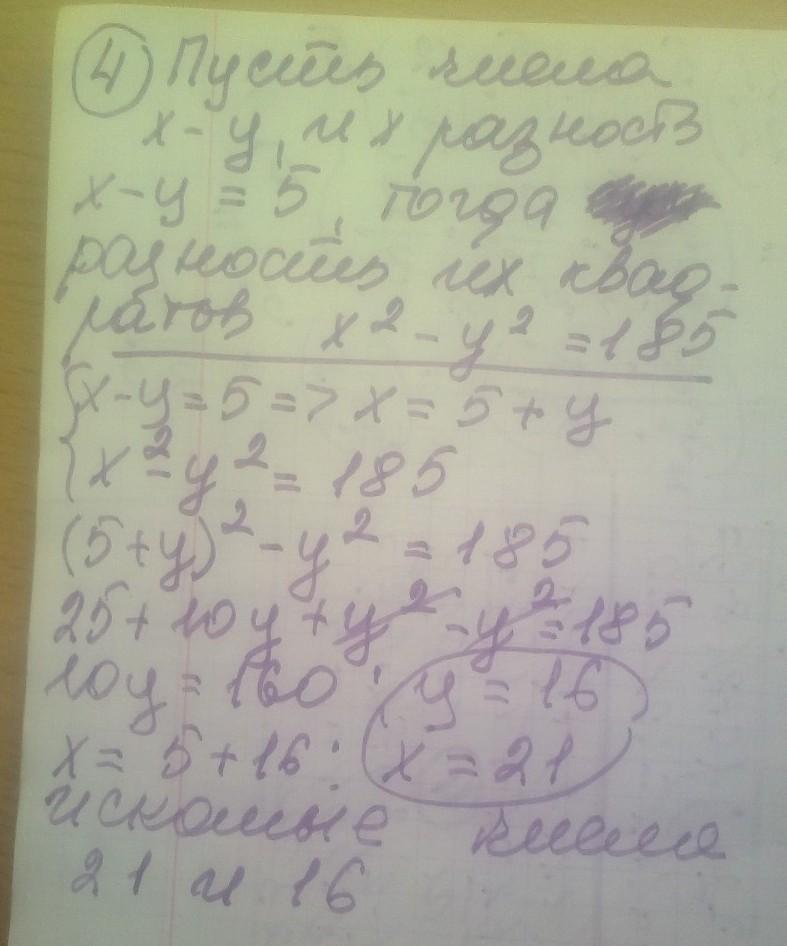 4 Пусть числа
x-y, их разность
x-y=5, тогда
разность их квад-
ратов x²-y²=185
{x-y=5=>x=5+y
{x²-y²=185
(5+y)²-y²=185
25+10y+y²-y²=185
10y=160; y=16
x=5+16; x=21
искомые числа
21 и 16